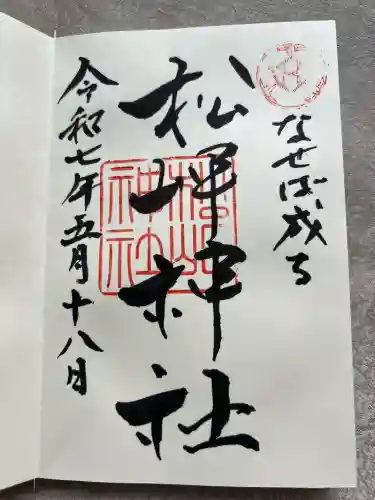 なせば成る
松岬神社
松岬
神社
令和七年五月十八日